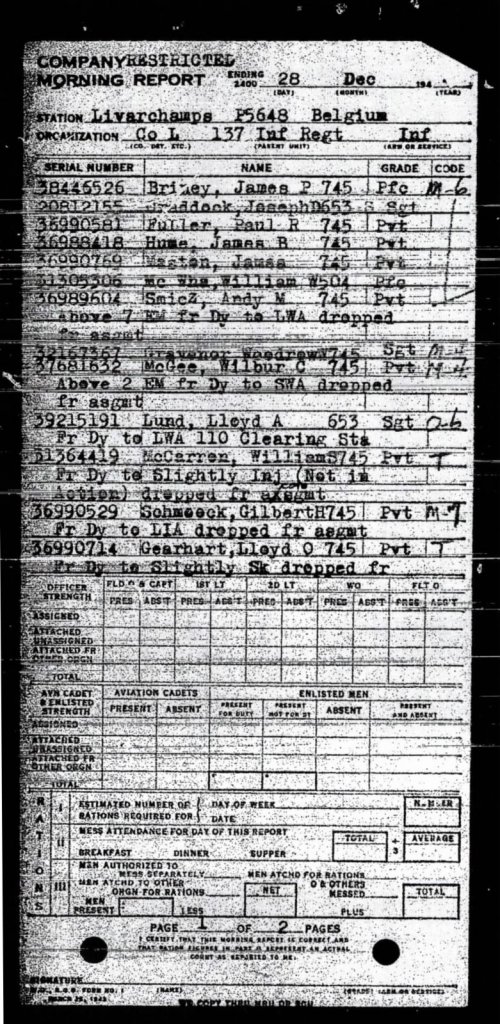 COMPANY RESTRICTED
MORNING REPORT ENDING 2400 28 Dec 194
(DAY) (MONTH) (YEAR)
STATION Livarchamps P5648 Belgium
ORGANIZATION Co L 137 Inf Regt Inf
(CO. DET. ETC.) (PARENT UNIT) (ARM OR SERVICE)
SERIAL NUMBER NAME GRADE CODE
38446526 James P 745 Pfc M-6
20812155 JosephD653 S Sgt
36990581 Fuller, Paul R 745 Pvt
36988418 Hume, James B 745 Pvt
36990769 James 745 Pvt
51305306 William W504 Pfc
36989604 Smicz, Andy M 745 Pvt
above 7 EM fr Dy to LWA dropped
fr asgmt
32167367 Gravenor WoodrowW745 Sgt M-4
37681632 McGee, Wilbur C 745 Pvt M-4
Above 2 EM fr Dy to SWA dropped
fr asgmt
39215191 Lund, Lloyd A 653 Sgt
Fr Dy to LWA 110 Clearing Sta
McCarren, WilliamS745 Pvt T
Fr Dy to Slightly Inj (Not in
Action) dropped fr asgmt
36990529 Schmoeck, GilbertH745 Pvt M-7
Fr Dy to LIA dropped fr asgmt
36990714 Gearhart, Lloyd O 745 Pvt T
Fr Dy to Slightly Sk dropped fr
OFFICER STRENGTH FLD O & CAPT 1ST LT 2D LT WO FLT O
PRES ABS'T PRES ABS'T PRES ABS'T PRES ABS'T PRES ABS'T
ASSIGNED
ATTACHED UNASSIGNED
ATTACHED FR OTHER ORGN
TOTAL
AVN CADET & ENLISTED STRENGTH AVIATION CADETS ENLISTED MEN
PRESENT ABSENT PRESENT FOR DUTY PRESENT NOT FOR DY ABSENT PRESENT AND ABSENT
ASSIGNED
ATTACHED UNASSIGNED
ATTACHED FR OTHER ORGN
TOTAL
RATIONS
I ESTIMATED NUMBER OF RATIONS REQUIRED FOR DAY OF WEEK DATE NUMBER
II MESS ATTENDANCE FOR DAY OF THIS REPORT TOTAL ÷ 3 AVERAGE
BREAKFAST DINNER SUPPER
III MEN AUTHORIZED TO MESS SEPARATELY MEN ATCHD FOR RATIONS
MEN ATCHD TO OTHER ORGN FOR RATIONS NET O & OTHERS MESSED TOTAL
MEN PRESENT LESS PLUS
PAGE 1 OF 2 PAGES
I CERTIFY THAT THIS MORNING REPORT IS CORRECT AND
THAT RATION FIGURES IN PART II REPRESENT AN ACTUAL
COUNT AS REPORTED TO ME.
SIGNATURE
FORM NO. 1 (NAME) (GRADE) (ARM OR SERVICE)
MARCH
COPY THRU MRU OR